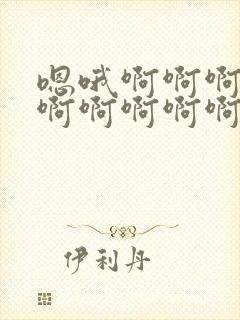 嗯哦啊啊啊
啊啊啊啊啊
伊利丹